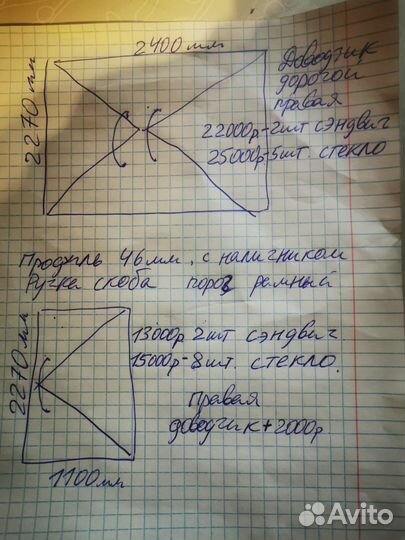 2400мм
2270мм
Доводчик
дорогой
правая
22000р-2шт сэндвич
25000р-5шт. стекло
Профиль 46мм, с наличником
Ручка скоба порог рамный
2270мм
13000р 2шт сэндвич.
15000р-8шт. стекло.
правая
доводчик+2000р.
1100мм
Avito